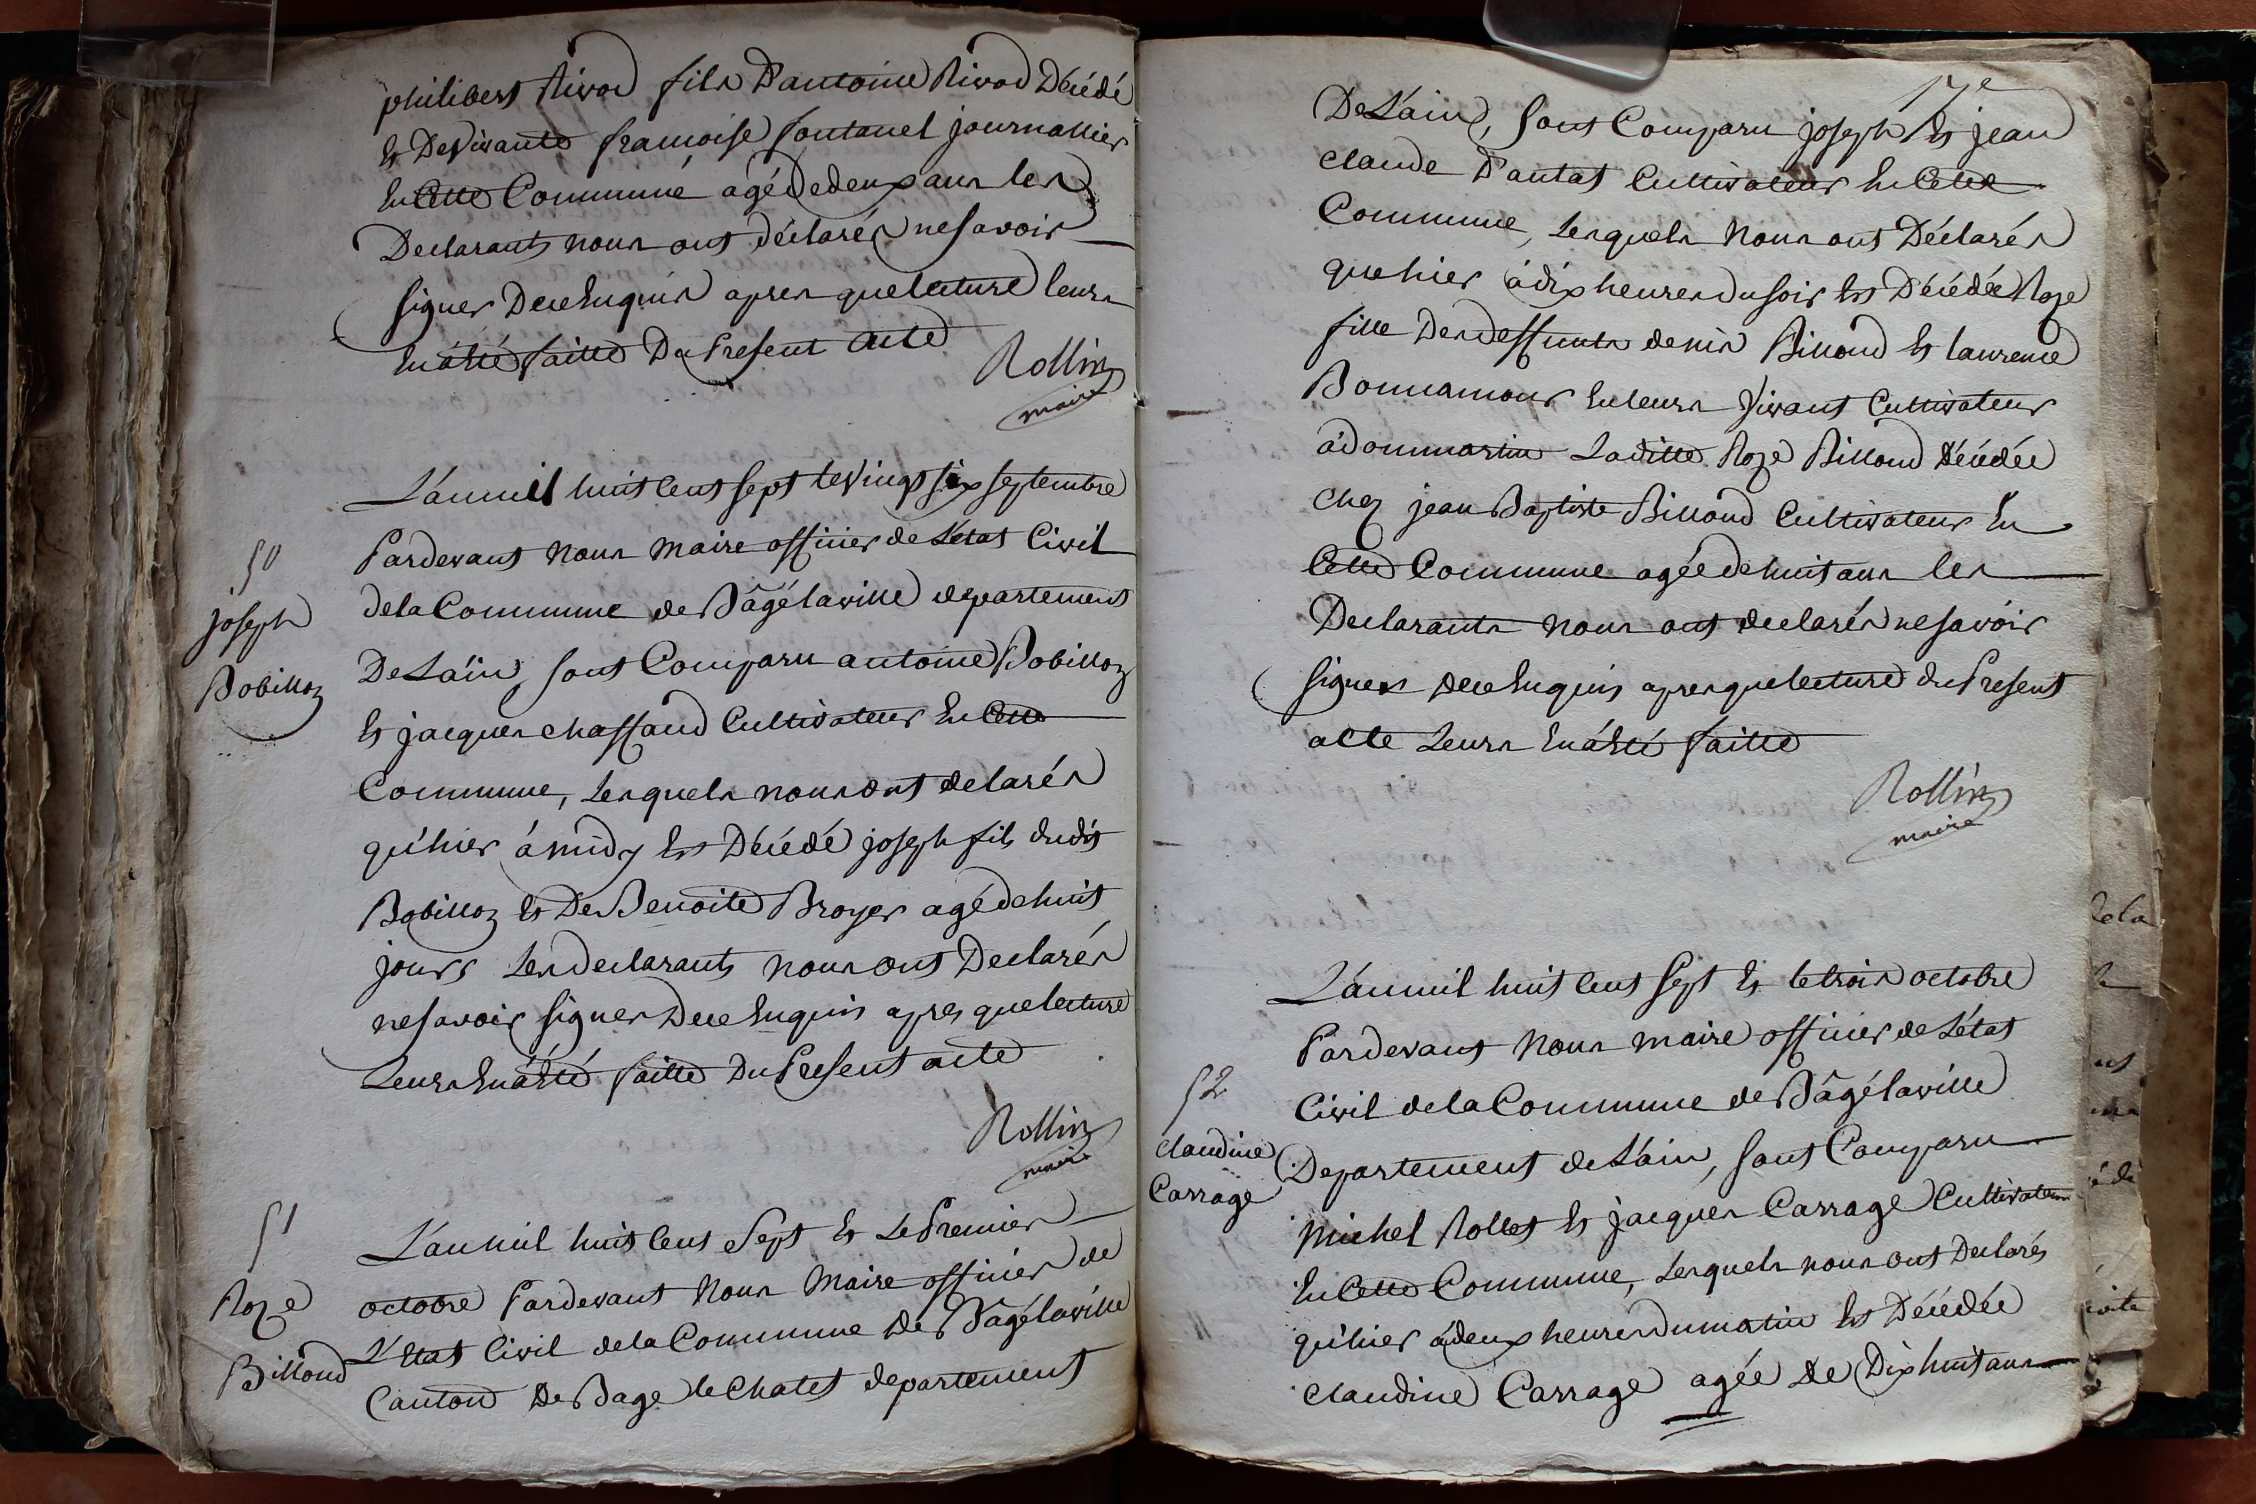 philibert Rivod fils D'antoine Rivod Décédé
et De vivante francoise fontanel journallier
En Cette Commune agé de deux ans les
Declarants nous ont déclarés ne savoir
signer De ce Enquis apres que lecture leurs
En a été faitte Du Present acte
Rollin
maire
50
joseph
Bobillon
L'an mil huit Cent sept le vingt six septembre
Pardevant nous maire officier de L'état Civil
de la Commune de Bâgé la ville departement
De L'ain, sont Comparu antoine Bobillon
et jacques chassaud Cultivateur En Cette
Commune, Lesquels nous ont declarés
qu'hier à midy Est Décédé joseph fils dudit
Bobillon et De Benoite Broyer agé de huit
jours Les declarants nous ont Declarés
ne savoir signer De ce Enquis apres que lecture
Leurs En a été faitte Du Present acte
Rollin
maire
51
Roze
Billoud
L'an mil huit Cent Sept et Le Premier
octobre Pardevant Nous Maire officier de
L'Etat Civil de la Commune De Bâgé la ville
Canton De Bage le Chatel departement
17e
De L'ain, sont Comparu joseph et jean
claude Dautat Cultivateur En Cette
Commune, Lesquels Nous ont Déclarés
que hier à dix heures du soir Est Décédée Roze
fille Des deffunts denis Billoud et laurence
Bonnamour En leurs Vivant Cultivateur
à dommartin La ditte Roze Billoud Décédée
chez jean Baptiste Billoud Cultivateur En
Cette Commune agée de huit ans les
Declarants nous ont declarés ne savoir
signer De ce Enquis apres que lecture du Present
acte Leurs En a été faitte
Rollin
maire
52
claudine
Carrage
L'an mil huit Cent Sept et le trois octobre
Pardevant Nous maire officier de L'état
Civil de la Commune de Bâgé la ville
Departement de L'ain, sont Comparu
Michel Rollet et jacques Carrage Cultivateur
En Cette Commune, Lesquels nous ont Declarés
qu'hier à deux heures du matin Est Décédée
claudine Carrage agée De Dix huit ans